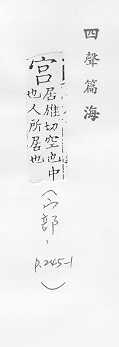 四聲篇海
宮居雄切空也中
也人所居也
(宀部,
p.245-1)